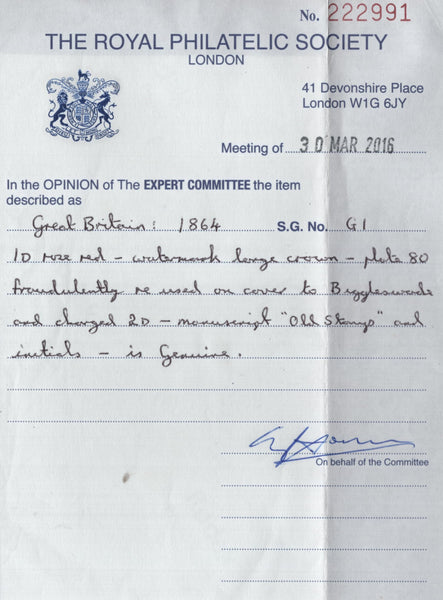 No. 222991
THE ROYAL PHILATELIC SOCIETY
LONDON
41 Devonshire Place
London W1G 6JY
Meeting of 30 MAR 2016
In the OPINION of The EXPERT COMMITTEE the item
described as
Great Britain: 1864 S.G. No. G1
1D rose red - watermark large crown - plate 80
fraudulently re used on cover to Biggleswade
and charged 2D - manuscript "Old Stamp" and
initials - is Genuine.
On behalf of the Committee